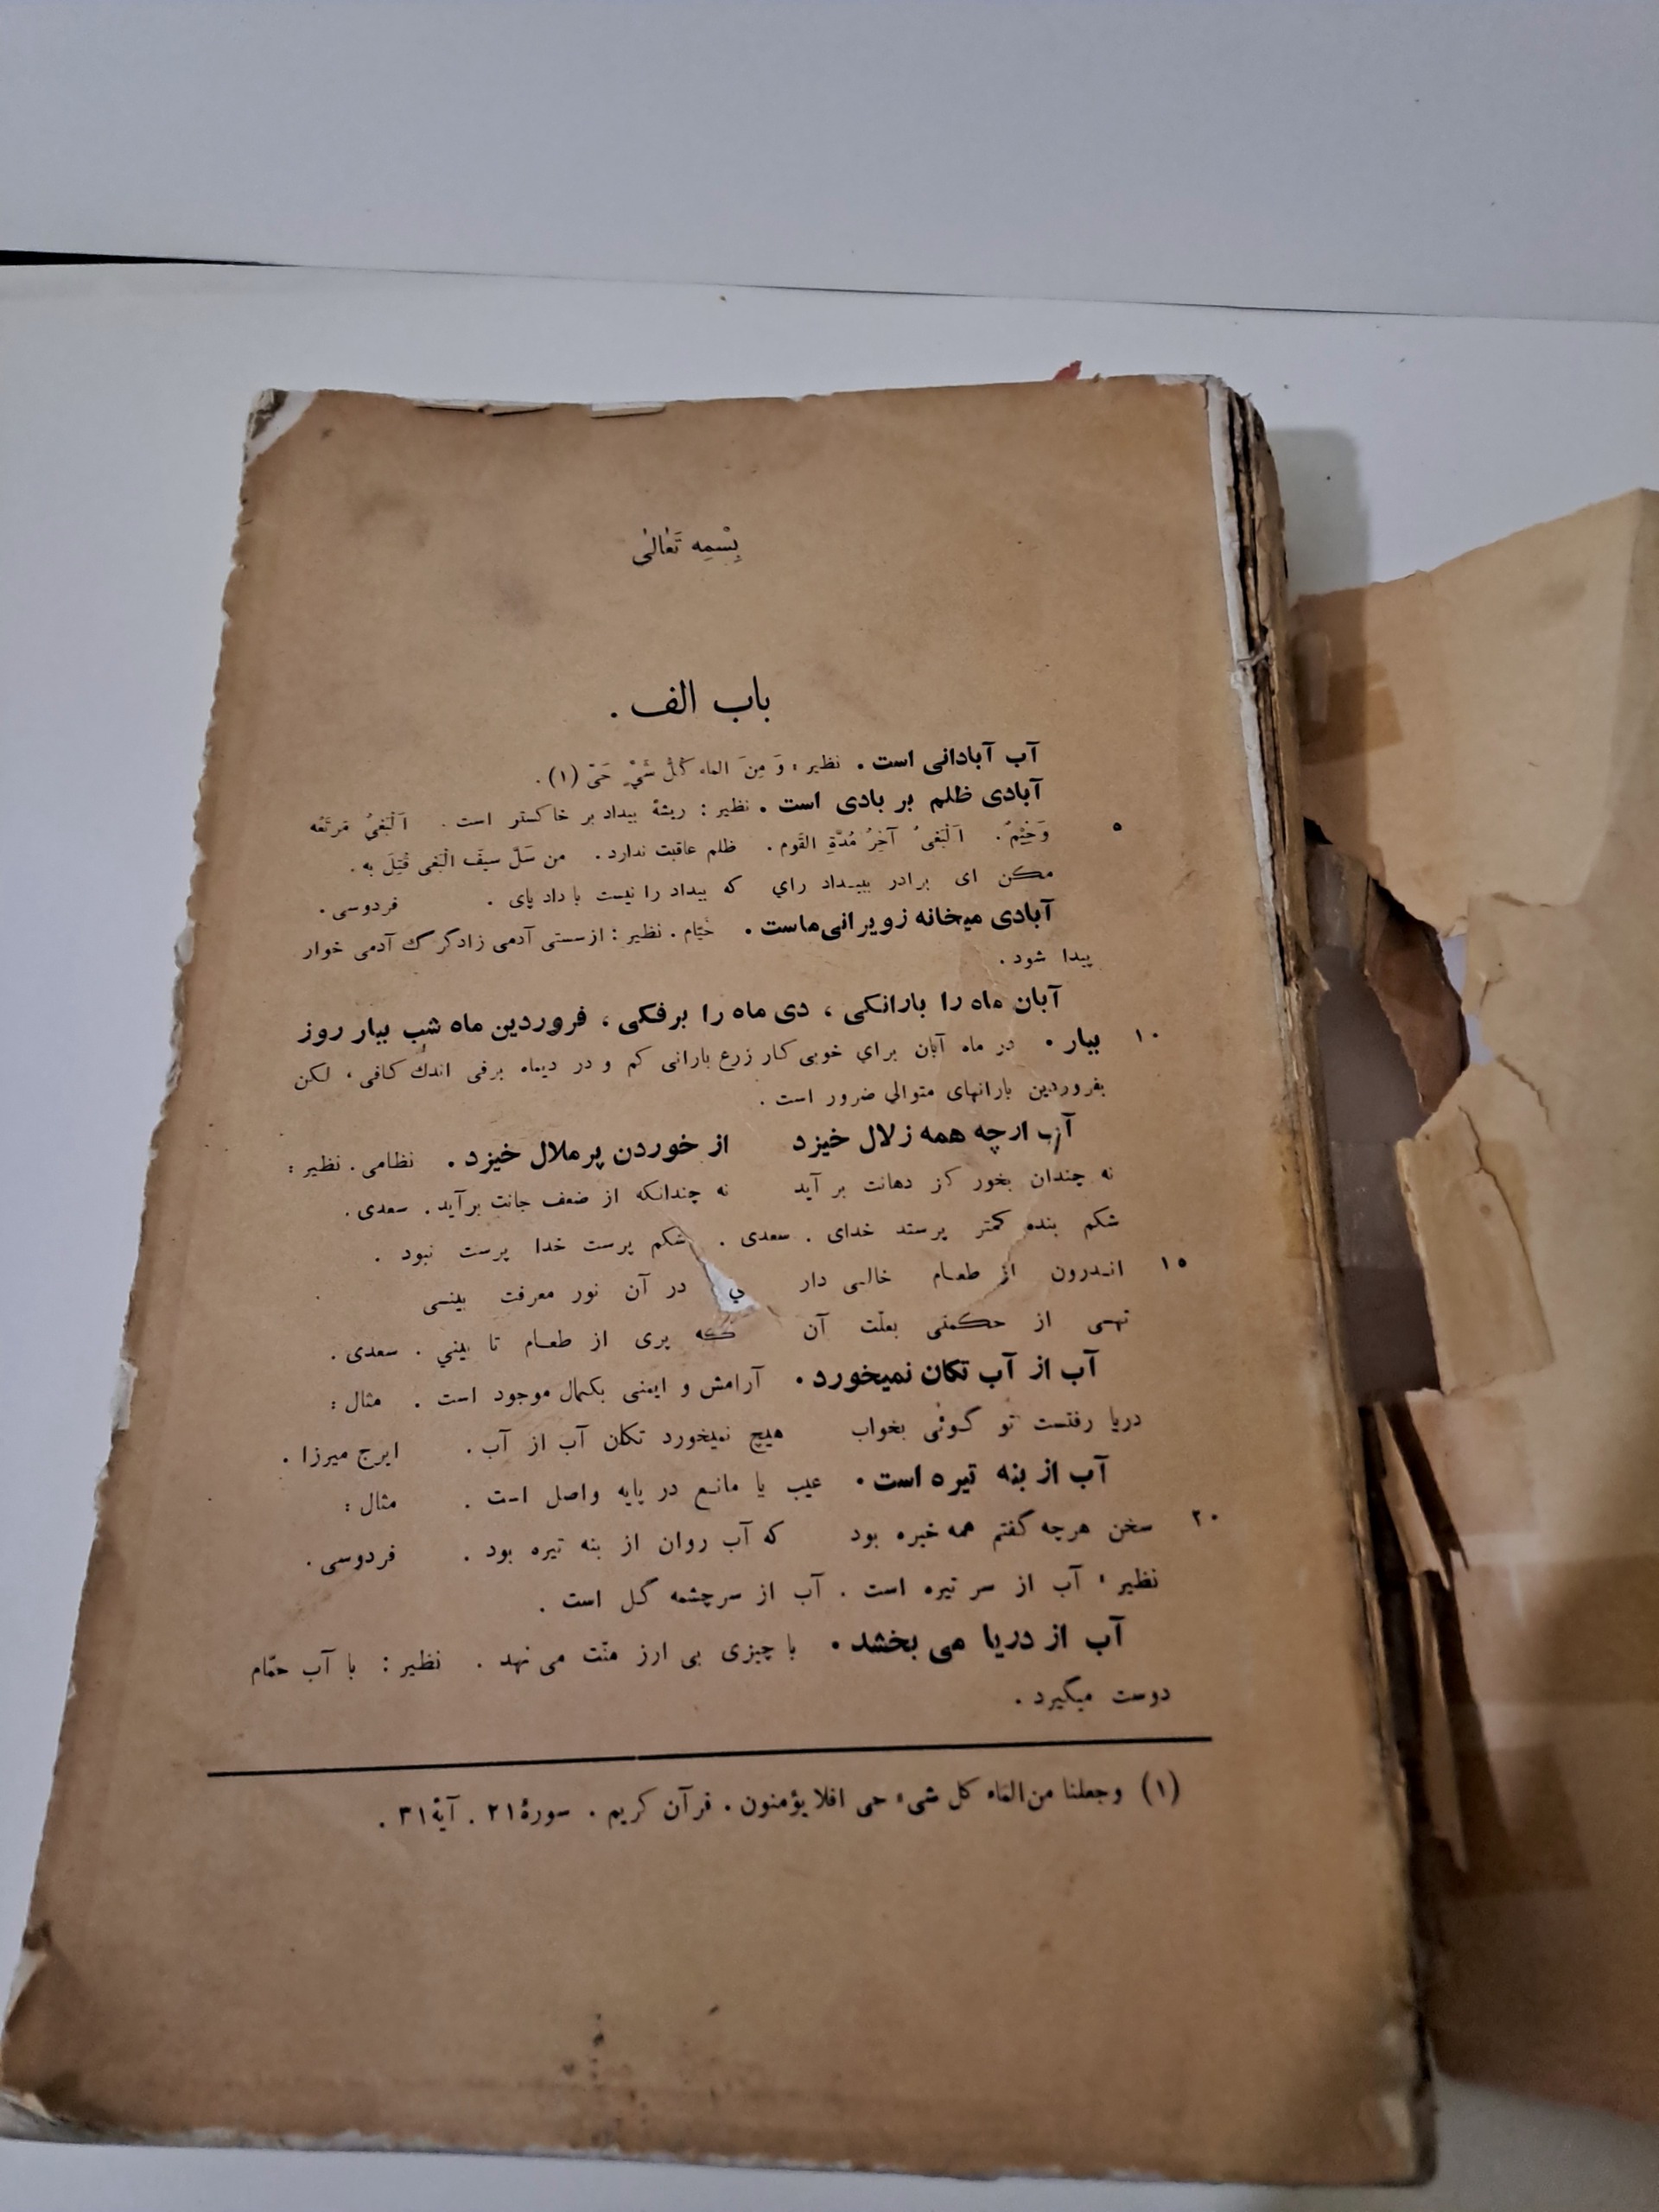 بِسْمِه تَعالی
باب الف .
آب آبادانی است . نظیر : وَ مِنَ الماء کُلُّ شَیْءٍ حَیّ (۱) .
آبادی ظلم بر بادی است . نظیر : ریشهٔ بیداد بر خاکستر است . اَلْبَغیُ مَرتَعُه
۵ وَخیْمٌ . اَلْبَغیُ آخِرُ مُدَّةِ القَوم . ظلم عاقبت ندارد . من سَلَّ سیفَ الْبَغی قُتِلَ به .
مکن ای برادر ببیداد رای که بیداد را نیست با داد پای . فردوسی .
آبادی میخانه زویرانی‌ماست . خیّام . نظیر : ازسستی آدمی زادگرگ آدمی خوار
پیدا شود .
آبان ماه را بارانکی ، دی ماه را برفکی ، فروردین ماه شب ببار روز
۱۰ ببار . در ماه آبان برای خوبی کار زرع بارانی کم و در دیماه برفی اندك کافی ، لکن
بفروردین بارانهای متوالی ضرور است .
آب ارچه همه زلال خیزد از خوردن پرملال خیزد . نظامی . نظیر :
نه چندان بخور کز دهانت بر آید نه چندانکه از ضعف جانت برآید . سعدی .
شکم بنده کمتر پرستد خدای . سعدی . شکم پرست خدا پرست نبود .
۱۵ انـدرون از طعـام خالـی دار در آن نور معرفت بینـی
تهـی از حکمتی بعلّت آن که پری از طعـام تا بینی . سعدی .
آب از آب تکان نمیخورد . آرامش و ایمنی بکمال موجود است . مثال :
دریا رفتست تو گـوئی بخواب هیچ نمیخورد تکان آب از آب . ایرج میرزا .
آب از بنه تیره است . عیب یا مانـع در پایه واصل است . مثال :
۲۰ سخن هرچه گفتم همه خیره بود که آب روان از بنه تیره بود . فردوسی .
نظیر : آب از سر تیره است . آب از سرچشمه گـل است .
آب از دریا می بخشد . با چیزی بی ارز منّت می نهد . نظیر : با آب حمّام
دوست میگیرد .
(۱) وجعلنا من‌الماء کل شیء حی افلا یؤمنون . قرآن کریم . سورهٔ ۲۱ . آیهٔ ۳۱ .